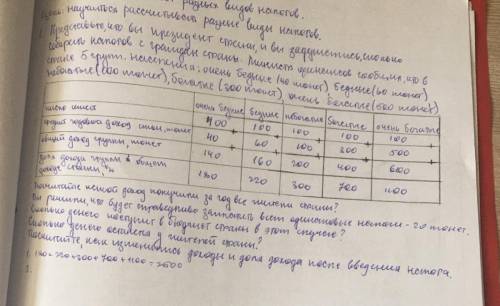 разных видов налогов.
научиться рассчитывать разные виды налогов.
1. Представьте, что вы президент страны, и вы задумались, сколько
собирать налогов с граждан страны. Министр финансов сообщил, что в
стране 5 групп населения: очень бедные (40 монет) бедные (60 монет)
небогатые (100 монет), богатые (300 монет) очень богатые (500 монет)
очень бедные бедные небогатые богатые очень богатые
число 100 100 100 100 100
доход 40 60 100 300 500
общий доход группы, монет 140 160 200 400 600
доля дохода группы в общем
доходе страны, % 180 220 300 700 1100
Посчитайте какой доход получили за год все жители страны?
Вы решили, что будет справедливо заплатить всем одинаковые налоги - 20 монет.
Сколько денег поступит в бюджет страны в этом случае?
Сколько денег останется у жителей страны?
Посчитайте, как изменились доходы и доля дохода после введения налога.
1. 180+220+300+700+1100=2500
2.